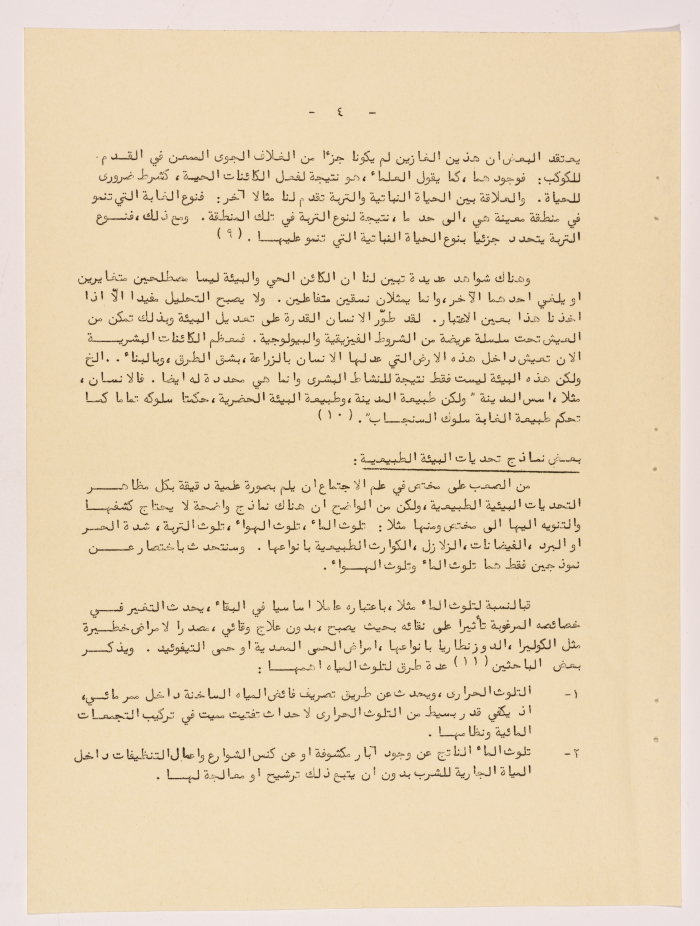 - ٤ -
يعتقد البعض ان هذين الغازين لم يكونا جزءًا من الغلاف الجوى الممعن في القدم
للكوكب: فوجودهما ،كما يقول العلماء ،هو نتيجة لفعل الكائنات الحية ، كشرط ضرورى
للحياة . والعلاقة بين الحياة النباتية والتربة تقدم لنا مثالا آخر : فنوع الغابة التي تنمو
في منطقة معينة هي ،الى حد ما ، نتيجة لنوع التربة في تلك المنطقة . ومع ذلك ،فنـــوع
التربة يتحدد جزئيا بنوع الحياة النباتية التي تنمو عليهـــا . (٩)
وهناك شواهد عديدة تبين لنا ان الكائن الحي والبيئة ليسا مصطلحين متغايرين
او يلغي احدهما الآخر ،وانما يمثلان نسقين متفاعلين . ولا يصبح التحليل مفيدا الّا اذا
اخذنا هذا بعين الاعتبار . لقد طوّر الانسان القدرة على تعديل البيئة وبذلك تمكن من
العيش تحت سلسلة عريضة من الشروط الفيزيقية والبيولوجية . فمعظم الكائنات البشريـــة
الان تعيش داخل هذه الارض التي عدلها الانسان بالزراعة ،بشق الطرق ،وبالبناء . . الخ
ولكن هذه البيئة ليست فقط نتيجة للنشاط البشرى وانما هي محددة له ايضا . فالانسان ،
مثلا ،اسس المدينة " ولكن طبيعة المدينة ،وطبيعة البيئة الحضرية ،حكمتا سلوكه تماما كمـا
تحكم طبيعة الغابة سلوك السنجـــاب" . (١٠)
بعض نماذج تحديات البيئة الطبيعيـة :
من الصعب على مختص في علم الاجتماع ان يلم بصورة علمية دقيقة بكل مظاهـــر
التحديات البيئية الطبيعية ،ولكن من الواضح ان هناك نماذج واضحة لا يحتاج كشفهـا
والتنويه اليها الى مختص ومنها مثلا : تلوث الماء ،تلوث الهواء ،تلوث التربة ، شدة الحـر
او البرد ، الفيضانات ،الزلازل ،الكوارث الطبيعية بانواعها . وسنتحدث باختصار عـــن
نموذجين فقط هما تلوث الماء وتلوث الهـــواء .
فبالنسبة لتلوث الماء مثلا ،باعتباره عاملا اساسيا في البقاء ،يحدث التغير فـــي
خصائصه المرغوبة تأثيرا على نقائه بحيث يصبح ،بدون علاج وقائي ،مصدرا لامراض خطيـرة
مثل الكوليرا ،الدوزنطاريا بانواعها ،امراض الحمى المعدية او حمى التيفوئيد . ويذكـــر
بعض الباحثين (١١) عدة طرق لتلوث المياه اهمهـــا :
١- التلوث الحرارى ،ويحدث عن طريق تصريف فائض المياه الساخنة داخل ممر مائـي ،
اذ يكفي قدر بسيط من التلوث الحرارى لاحداث تفتيت مميت في تركيب التجمعات
المائية ونظامهـــا .
٢- تلوث الماء الناتج عن وجود آبار مكشوفة او عن كنس الشوارع واعمال التنظيفات داخل
المياة الجارية للشرب بدون ان يتبع ذلك ترشيح او معالجة لهـــا .